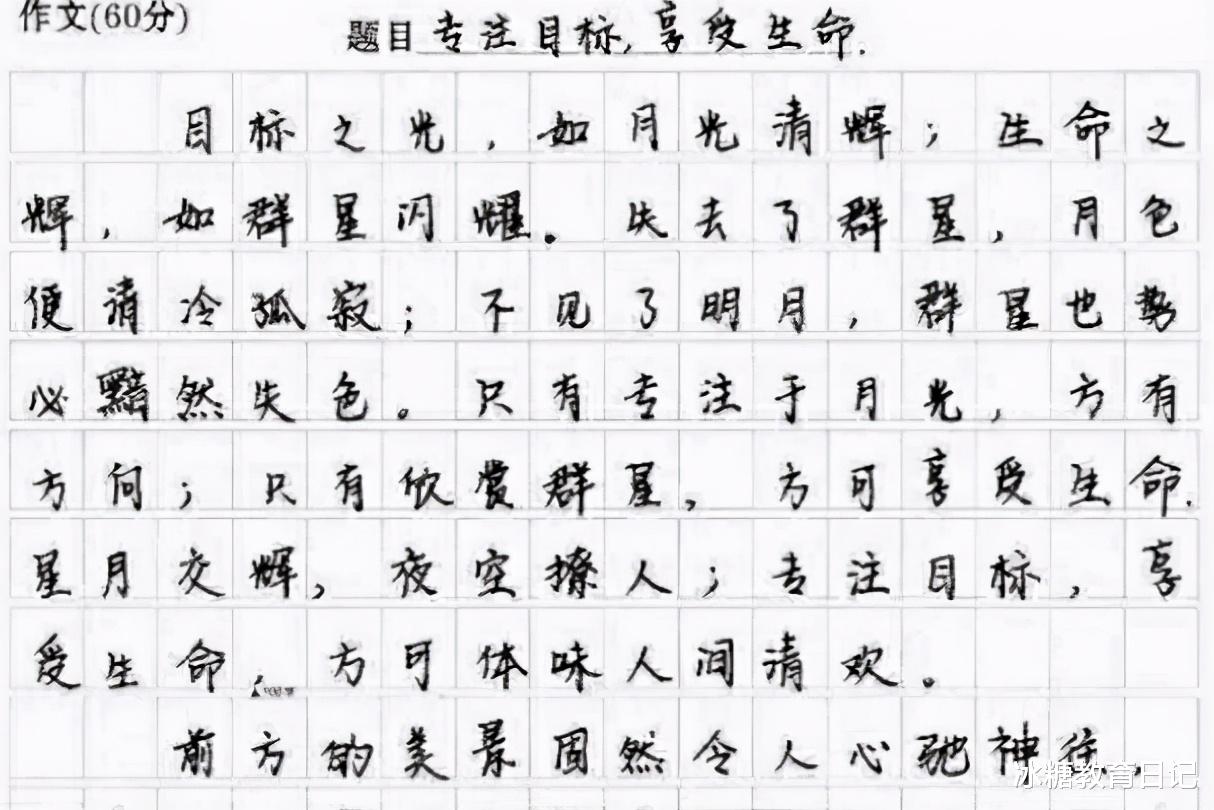 作文(60分)
题目 专注目标,享受生命.
目标之光，如月光清辉；生命之
辉，如群星闪耀。失去了群星，月色
便清冷孤寂；不见了明月，群星也势
必黯然失色。只有专注于月光，方有
方向；只有欣赏群星，方可享受生命.
星月交辉，夜空撩人；专注目标，享
受生命，方可体味人间清欢。
前方的美景固然令人心驰神往
冰糖教育日记